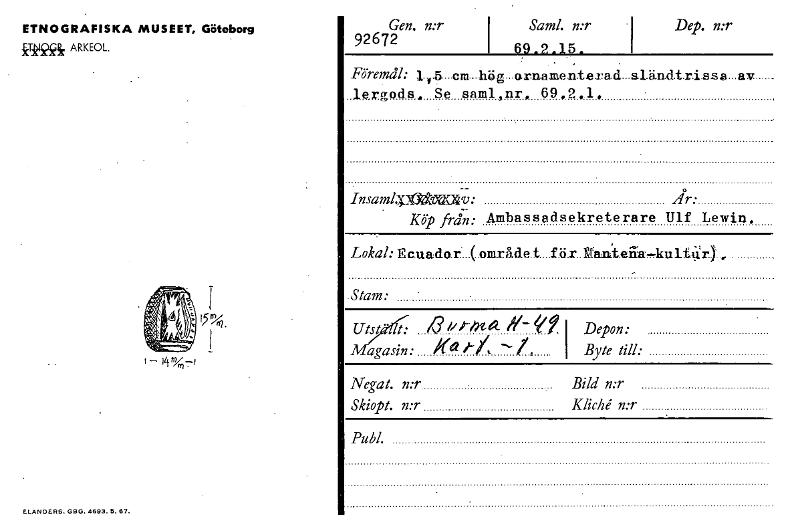 ETNOGRAFISKA MUSEET, Göteborg
ETNOGR. ARKEOL.
Gen. n:r Saml. n:r Dep. n:r
92672 69.2.15.
Föremål: 1,5 cm hög ornamenterad sländtrissa av
lergods. Se saml.nr. 69.2.1.
Insaml. År:
Köp från: Ambassadsekreterare Ulf Lewin.
Lokal: Ecuador (området för Manteña-kultur).
Stam:
15 m/m.
Utställt: Burma H-49 Depon:
Magasin: Kart. -1. Byte till:
1 - 14 m/m -1
Negat. n:r Bild n:r
Skiopt. n:r Kliché n:r
Publ.
ELANDERS. GBG. 4693. 5. 67.